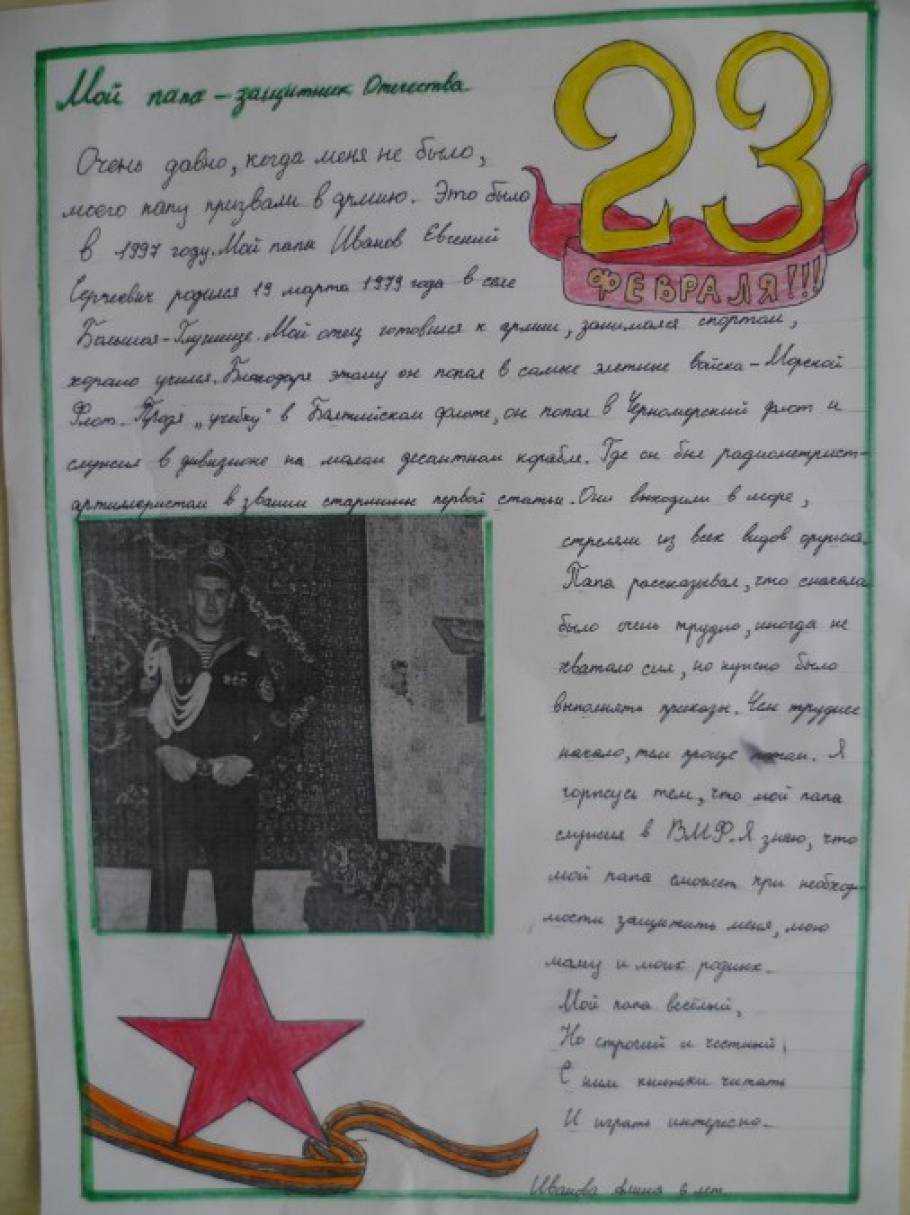 Мой папа – защитник Отечества
23
ФЕВРАЛЯ!!!
Очень давно, когда меня не было,
моего папу призвали в армию. Это было
в 1997 году. Мой папа Иванов Евгений
Сергеевич родился 19 марта 1979 года в селе
Большая-Глушица. Мой отец готовился к армии, занимался спортом,
хорошо учился. Благодаря этому он попал в самые элитные войска – Морской
Флот. Пройдя „учебку" в Балтийском флоте, он попал в Черноморский флот и
служил в дивизионе на малом десантном корабле. Где он был радиометрист-
артиллеристом в звании старшины первой статьи. Они выходили в море,
стреляли из всех видов оружия.
Папа рассказывал, что сначала
было очень трудно, иногда не
хватало сил, но нужно было
выполнять приказы. Чем труднее
начало, тем проще потом. Я
горжусь тем, что мой папа
служил в ВМФ. Я знаю, что
мой папа сможет при необходи-
мости защитить меня, мою
маму и моих родных.
Мой папа весёлый,
Но строгий и честный,
С ним книжки читать
И играть интересно.
Иванова лет